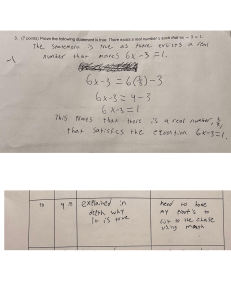 3. (7 points) Prove the following statement is true. There exists a real number x such that 6x − 3 = 1.
The statement is true as there exists a real
number that makes 6x - 3 = 1.
6x-3 = 6(2/3) - 3
6x-3 = 4-3
6x-3 = 1
This means that there is a real number, 2/3,
that satisfies the equation 6x-3=1.
explained in
depth why
it is true
need to have
my proof's to
cut to the chase
using math